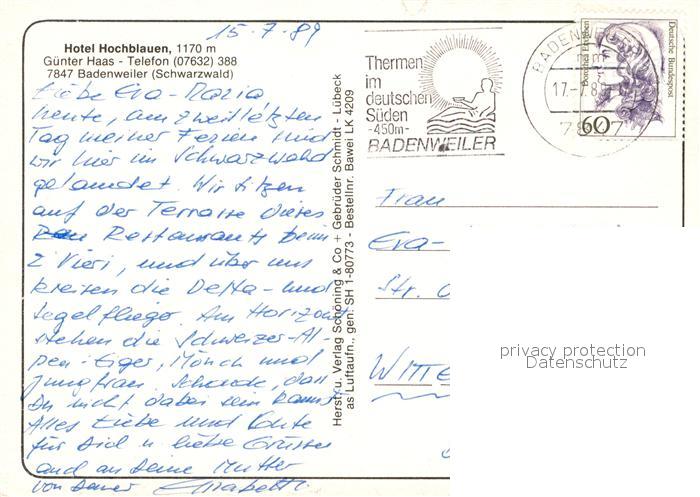 15-7-89
Hotel Hochblauen, 1170 m
Günter Haas - Telefon (07632) 388
7847 Badenweiler (Schwarzwald)
Liebe Eva-Maria
heute, am zweitletzten
Tag meiner Ferien sind
wir hier im Schwarzwald
gelandet. Wir sitzen
auf der Terrasse dieses
Restaurants beim
Z'Vieri, und über uns
kreisen die Delta- und
Segelflieger. Am Horizont
stehen die Schweizer-Al-
pen: Eiger, Mönch und
Jungfrau. Schade, dass
Du nicht dabei sein kannst
Alles Liebe und Gute
für Dich u. liebe Grüsse
auch an Deine Mutter
von Deiner Elisabeth.
Herst. u. Verlag Schöning & Co + Gebrüder Schmidt - Lübeck
as Luftaufn., gen: SH 1-80773 - Bestellnr. Bawei LK 4209
Thermen
im
deutschen
Süden
-450m-
BADENWEILER
BADENWEILER
17.-7.8
7847
Dorothea Erxleben
Deutsche Bundespost
60
Frau
Eva-
Str.
WITTE
privacy protection
Datenschutz